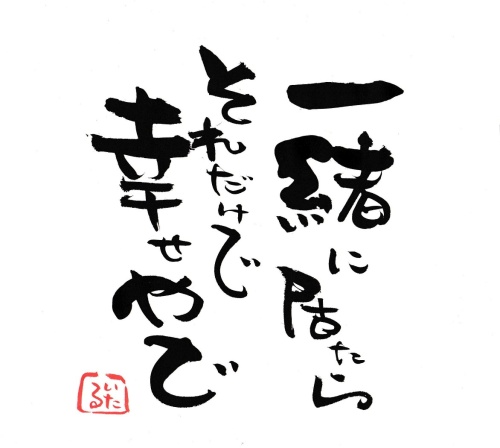 一緒に居たら
それだけで
幸せやで
いたる